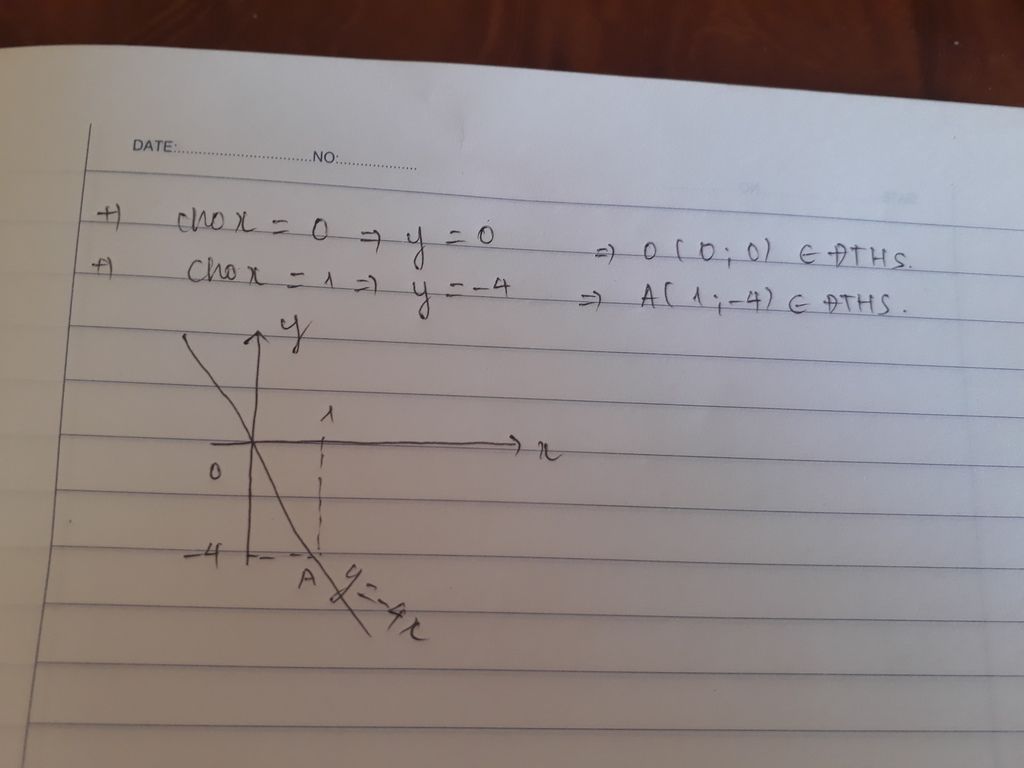 DATE:..............................NO:.................
+) cho x = 0 => y = 0 => O(0; 0) ∈ ĐTHS.
+) cho x = 1 => y = -4 => A(1; -4) ∈ ĐTHS.
y
1
x
0
-4
A
y=-4x